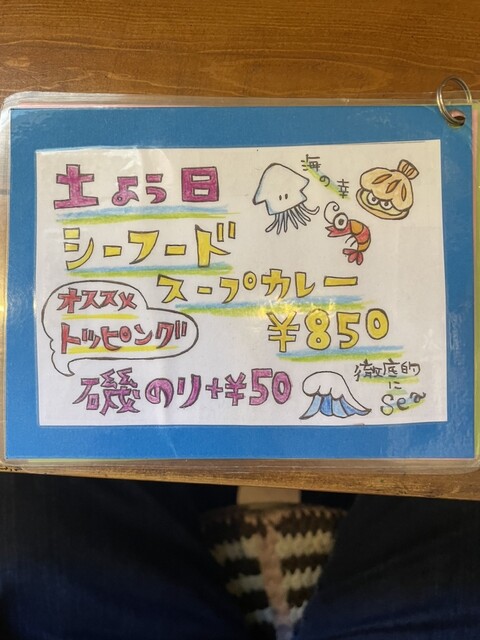 土よう日
海の幸
シーフード
スープカレー
¥850
オススメ
トッピング
磯のり+¥50
徹底的
に
sea